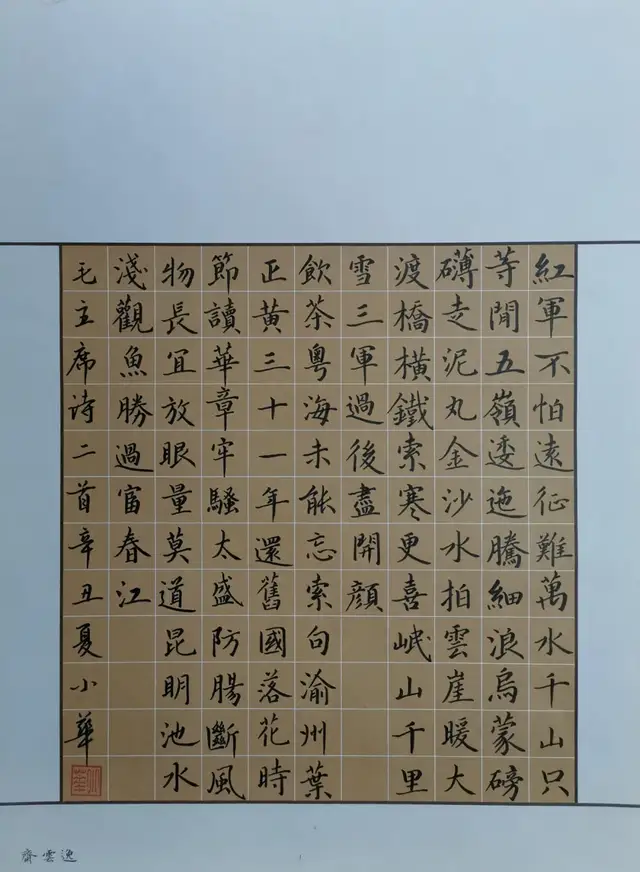 紅軍不怕遠征難萬水千山只
等閒五嶺逶迤騰細浪烏蒙磅
礴走泥丸金沙水拍雲崖暖大
渡橋橫鐵索寒更喜岷山千里
雪三軍過後盡開顔
飲茶粵海未能忘索句渝州葉
正黃三十一年還舊國落花時
節讀華章牢騷太盛防腸斷風
物長宜放眼量莫道昆明池水
淺觀魚勝過富春江
毛主席诗二首辛丑夏小華
逸雲齋